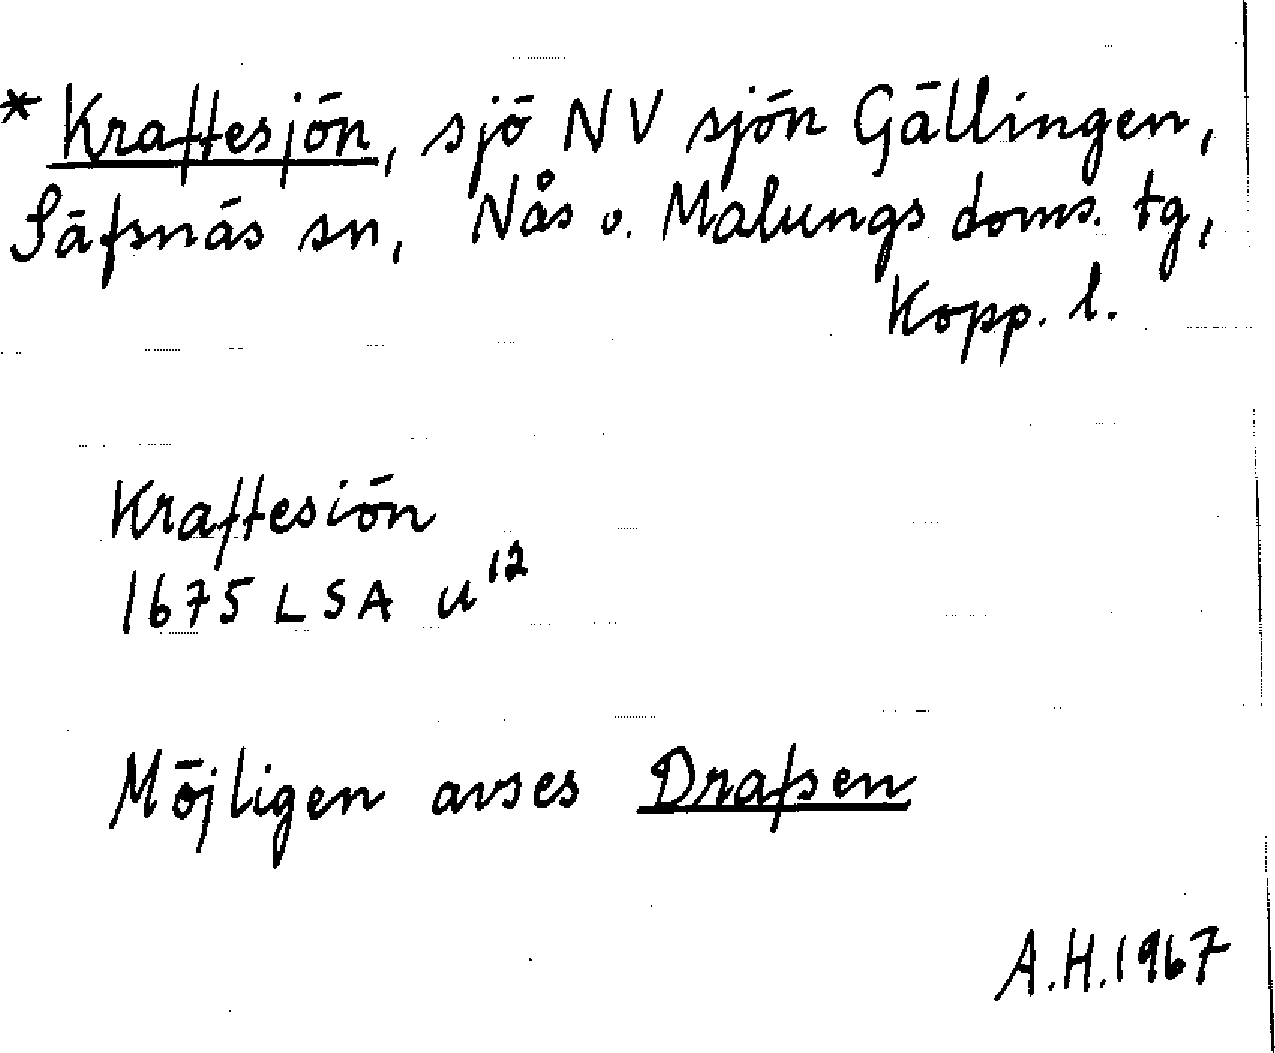 * Kraftesjön, sjö NV sjön Gällingen,
Säfsnäs sn, Nås o. Malungs doms. tg,
Kopp. l.
Kraftesiön
1675 LSA u¹²
Möjligen avses Drafsen
A.H. 1967